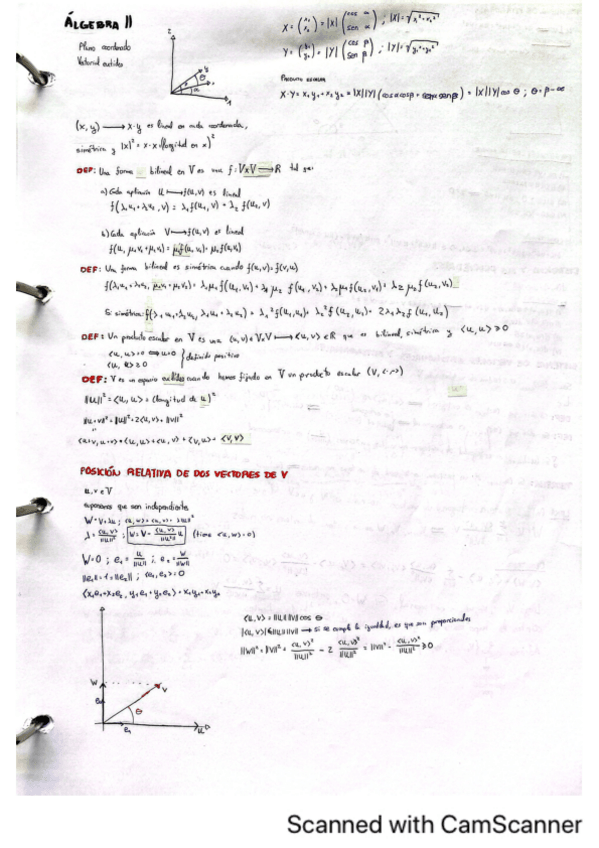 ÁLGEBRA II
Plano coordenado
Vectorial euclídeo
X = (x₁ x₂) = |X| (cos α sen α) ; |X| = √x₁²+x₂²
Y = (y₁ y₂) = |Y| (cos β sen β) ; |Y| = √y₁²+y₂²
PRODUCTO ESCALAR
X·Y = x₁y₁+x₂y₂ = |X||Y|(cosαcosβ + senαsenβ) = |X||Y|cos θ ; θ = β-α
(x, y) → x·y es lineal en cada coordenada,
simétrica y |x|² = x·x (longitud en x)²
DEF: Una forma bilineal en V es una f: V×V → R tal que
a) Cada aplicación u ↦ f(u,v) es lineal
f(λ₁u₁+λ₂u₂, v) = λ₁f(u₁,v) + λ₂f(u₂,v)
b) Cada aplicación v ↦ f(u,v) es lineal
f(u, μ₁v₁+μ₂v₂) = μ₁f(u,v₁)+μ₂f(u,v₂)
DEF: Una forma bilineal es simétrica cuando f(u,v) = f(v,u)
f(λ₁u₁+λ₂u₂, μ₁v₁+μ₂v₂) = λ₁μ₁f(u₁,v₁)+λ₁μ₂f(u₁,v₂)+λ₂μ₁f(u₂,v₁)+λ₂μ₂f(u₂,v₂)
Si simétrica: f(λ₁u₁+λ₂u₂, λ₁u₁+λ₂u₂) = λ₁²f(u₁,u₁)+λ₂²f(u₂,u₂)+2λ₁λ₂f(u₁,u₂)
DEF: Un producto escalar en V es una (u,v) ∈ V×V → <u,v> ∈ R que es bilineal, simétrica y <u,u> ≥ 0
<u,u> = 0 ⟺ u=0 } definido positivo
<u,u> ≥ 0
DEF: V es un espacio euclídeo cuando hemos fijado en V un producto escalar (V, <·,·>)
||u||² = <u,u> = (longitud de u)²
||u+v||² = ||u||²+2<u,v>+||v||²
<u+v, u+v> = <u,u>+<u,v>+<v,u>+<v,v>
POSICIÓN RELATIVA DE DOS VECTORES DE V
u, v ∈ V
suponemos que son independientes
W = V+λu ; <u,w> = <u,v> - λ||u||²
λ = <u,v>/||u||² ; W = V - <u,v>/||u||² u (tiene <u,w>=0)
W=0 ; e₁ = u/||u|| ; e₂ = w/||w||
||e₁|| = 1 = ||e₂|| ; <e₁,e₂> = 0
<x₁e₁+x₂e₂, y₁e₁+y₂e₂> = x₁y₁+x₂y₂
<u,v> = ||u||||v|| cos θ
|<u,v>| ≤ ||u||||v|| → si se cumple la igualdad, es que son proporcionales
||w||² = ||v||² + <u,v>²/||u||² - 2 <u,v>²/||u||² = ||v||² - <u,v>²/||u||² ≥ 0
W
e₂
V
θ
e₁
u
Scanned with CamScanner